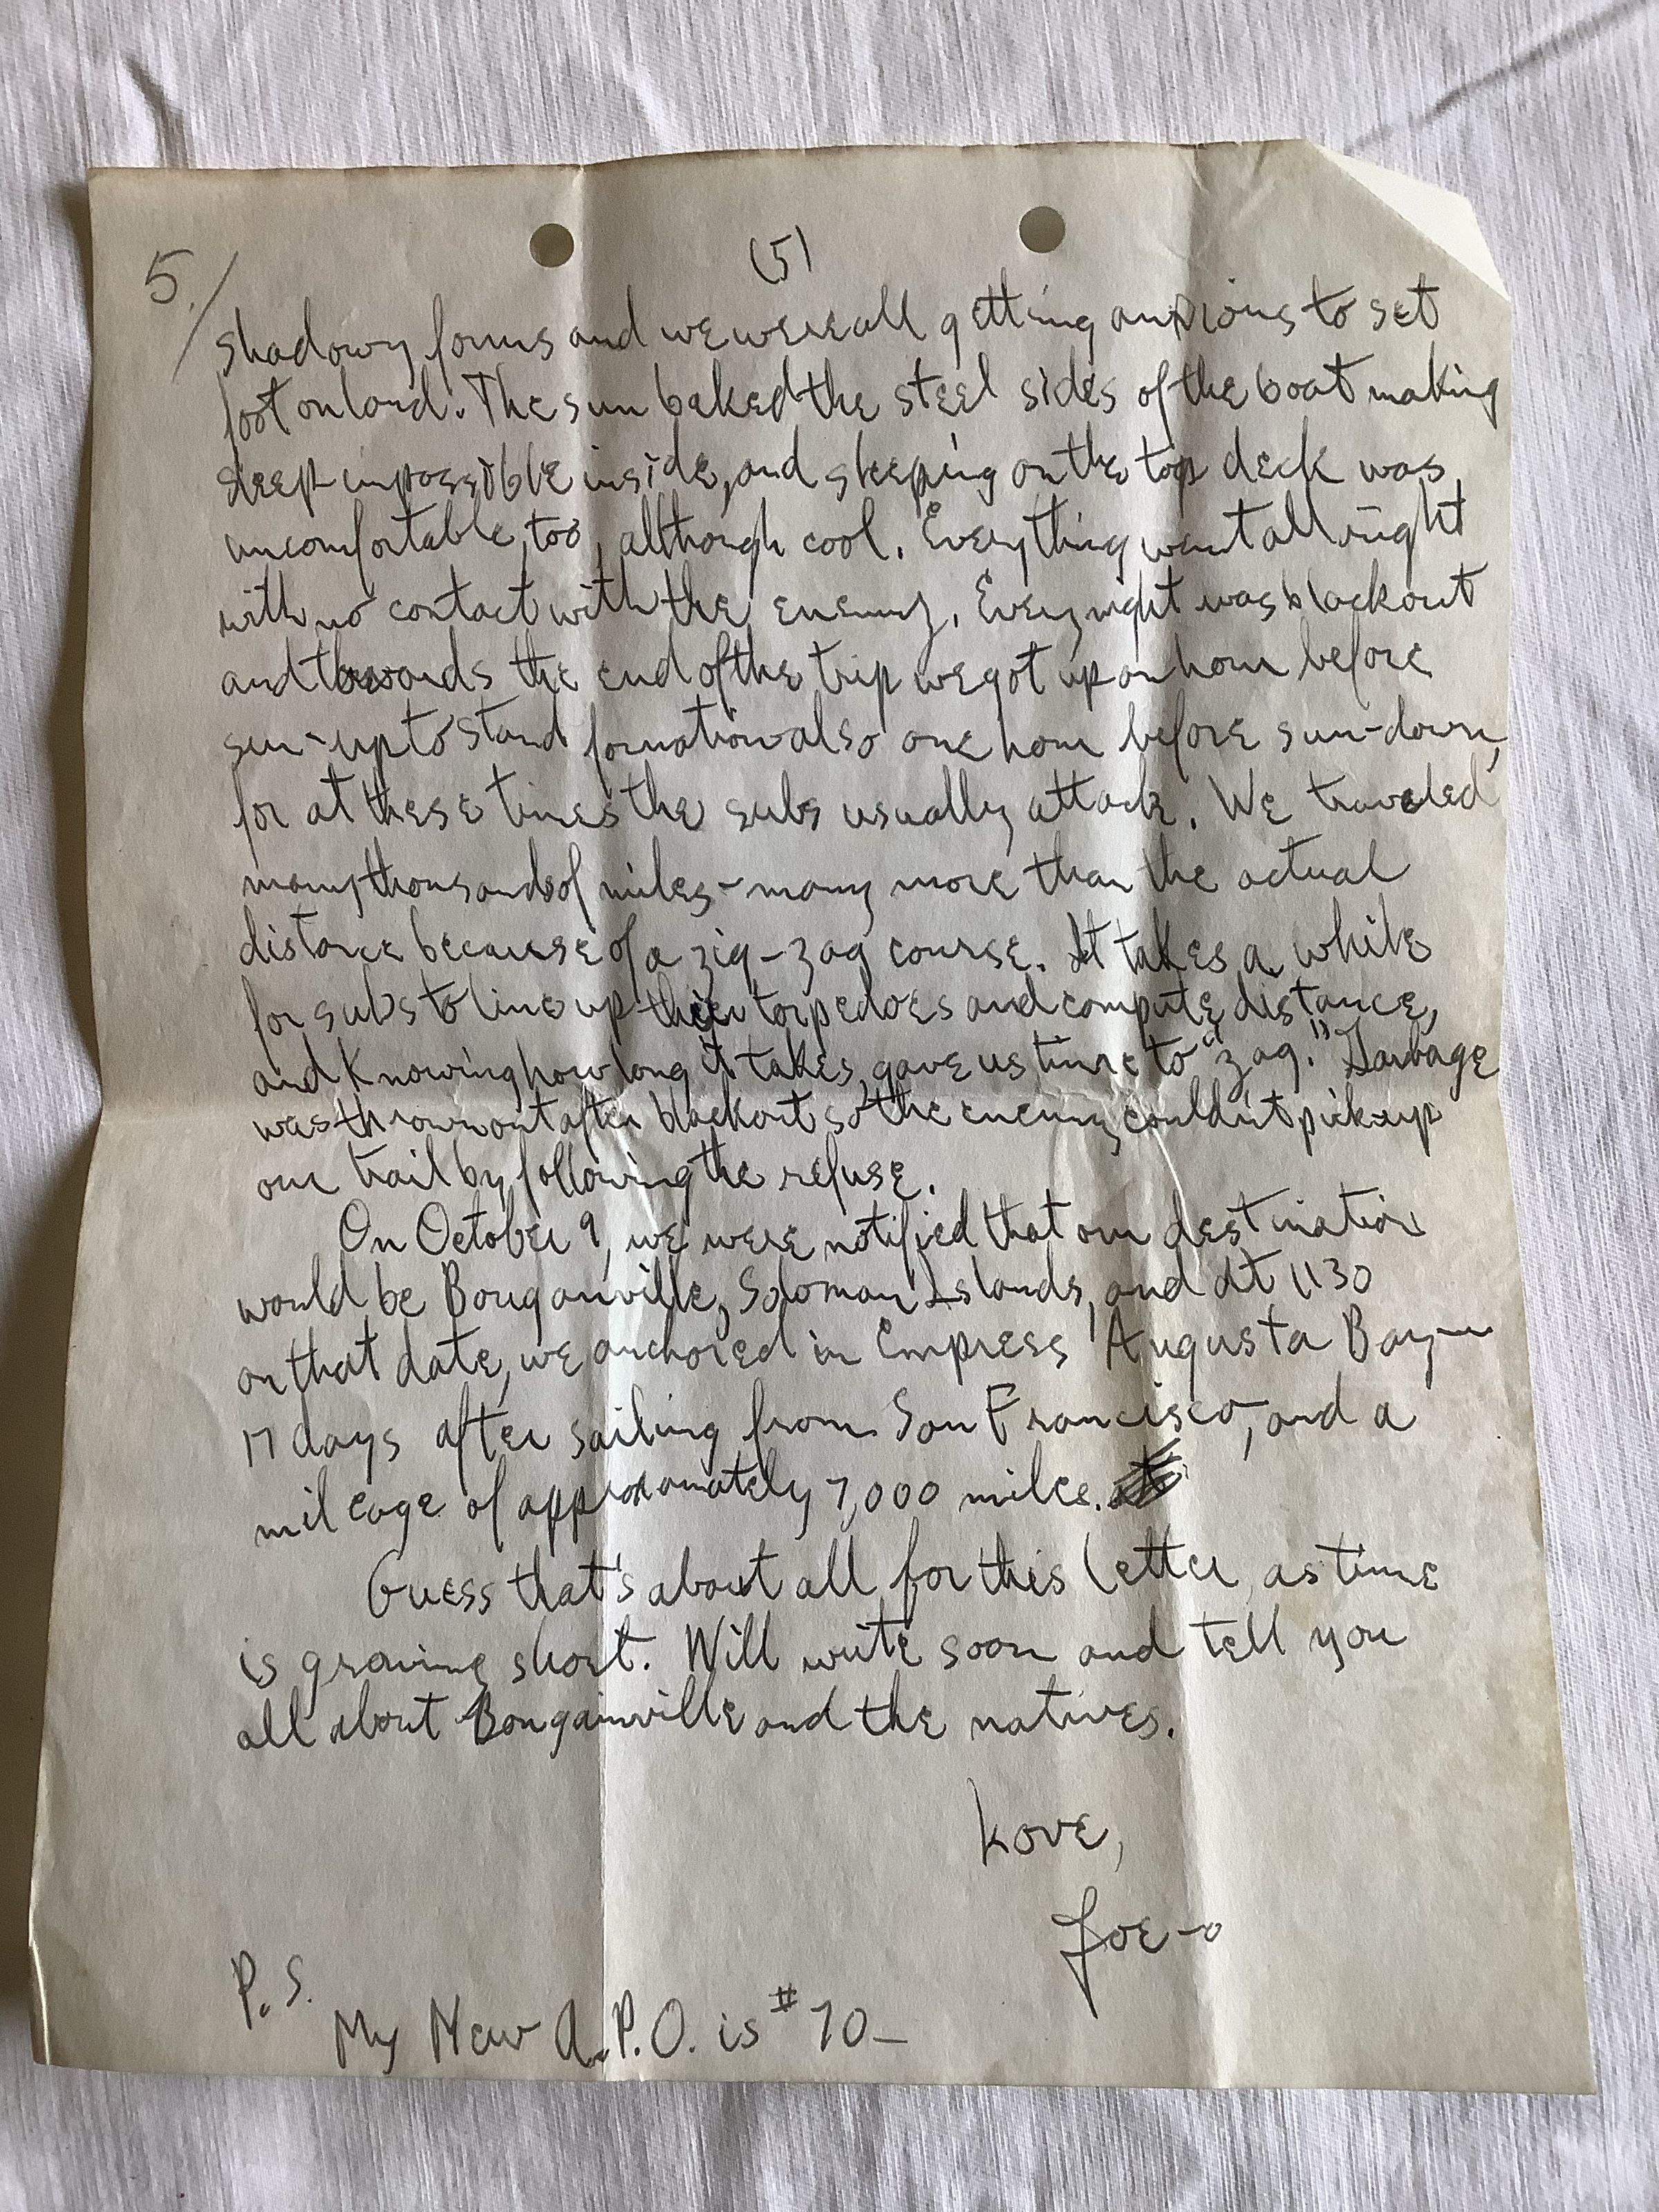 5./
(5)
shadowy forms and we were all getting anxious to set
foot on land. The sun baked the steel sides of the boat making
sleep impossible inside, and sleeping on the top deck was
uncomfortable, too, although cool. Everything went all right
with no contact with the enemy. Every night was blackout
and towards the end of the trip we got up an hour before
sun-up to stand formation also one hour before sun-down,
for at these times the subs usually attack. We traveled
many thousands of miles - many more than the actual
distance because of a zig-zag course. It takes a while
for subs to line up their torpedoes and compute distance,
and knowing how long it takes, gave us time to "zag." Garbage
was thrown out after blackout so the enemy couldn't pick-up
our trail by following the refuse.
On October 9, we were notified that our destination
would be Bouganville, Soloman Islands, and at 1130
on that date, we anchored in Empress Augusta Bay—
17 days after sailing from San Francisco, and a
mileage of approxamately 7,000 miles.
Guess that's about all for this letter, as time
is growing short. Will write soon and tell you
all about Bougainville and the natives.
Love,
Joe-o
P.S.
My New A.P.O. is #70—